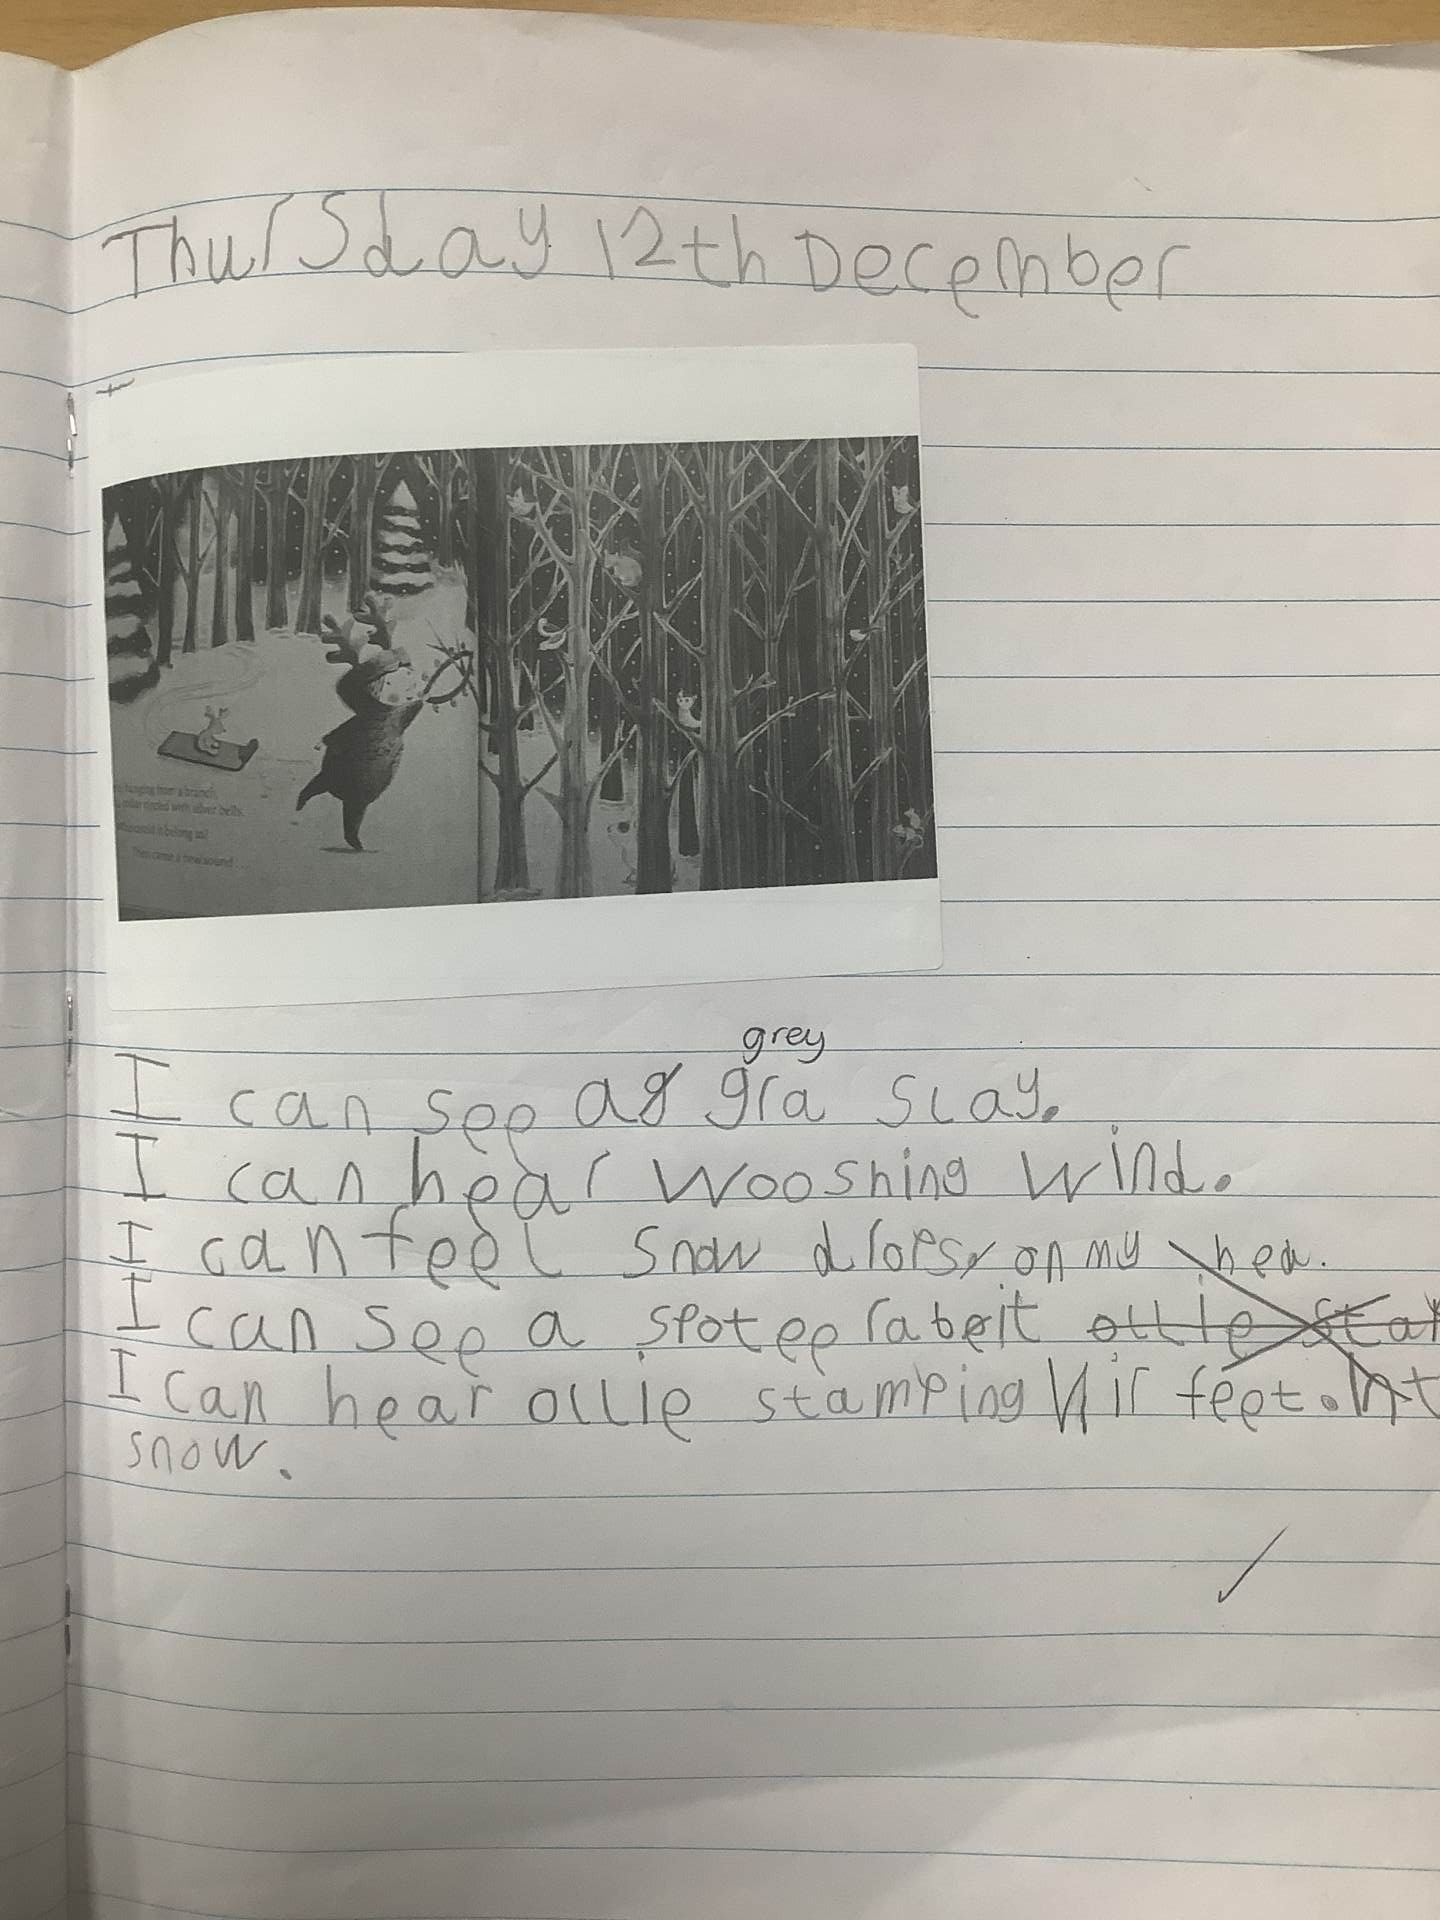 Thursday 12th December
hanging from a branch,
collar rimmed with silver bells.
could it belong to?
Then came a new sound . . .
grey
I can see a gra slay.
I can hear wooshing wind.
I can feel snow drops on my hea.
I can see a spotee rabeit ollie sta
I can hear ollie stamping hir feet.
snow.